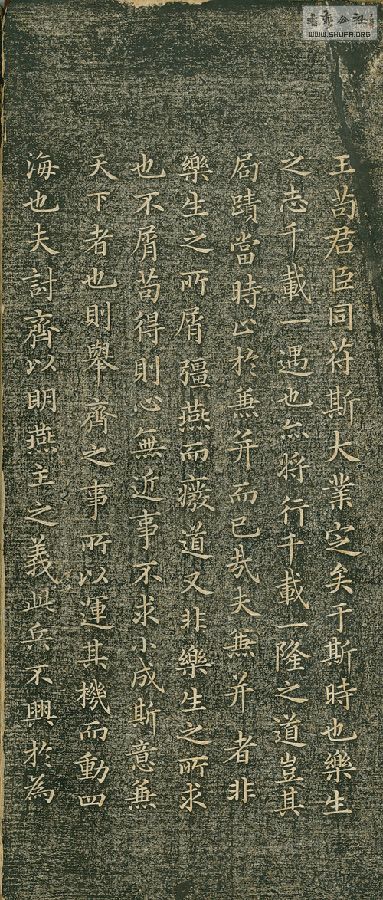 王苟君臣同符斯大業定矣于斯時也樂生
之志千載一遇也亦將行千載一隆之道豈其
局蹟當時止於兼并而已哉夫兼并者非
樂生之所屑彊燕而癈道又非樂生之所求
也不屑苟得則心無近事不求小成斯意兼
天下者也則舉齊之事所以運其機而動四
海也夫討齊以明燕主之義此兵不興於為
WWW.SHUFA.ORG